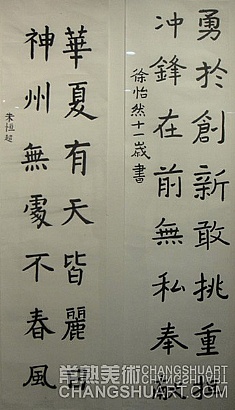 勇於創新敢挑重担
冲鋒在前無私奉献
徐怡然十一歲書
華夏有天皆麗日
神州無處不春風
常熟美術 CHANGSHUART
CHANGSHUART.COM